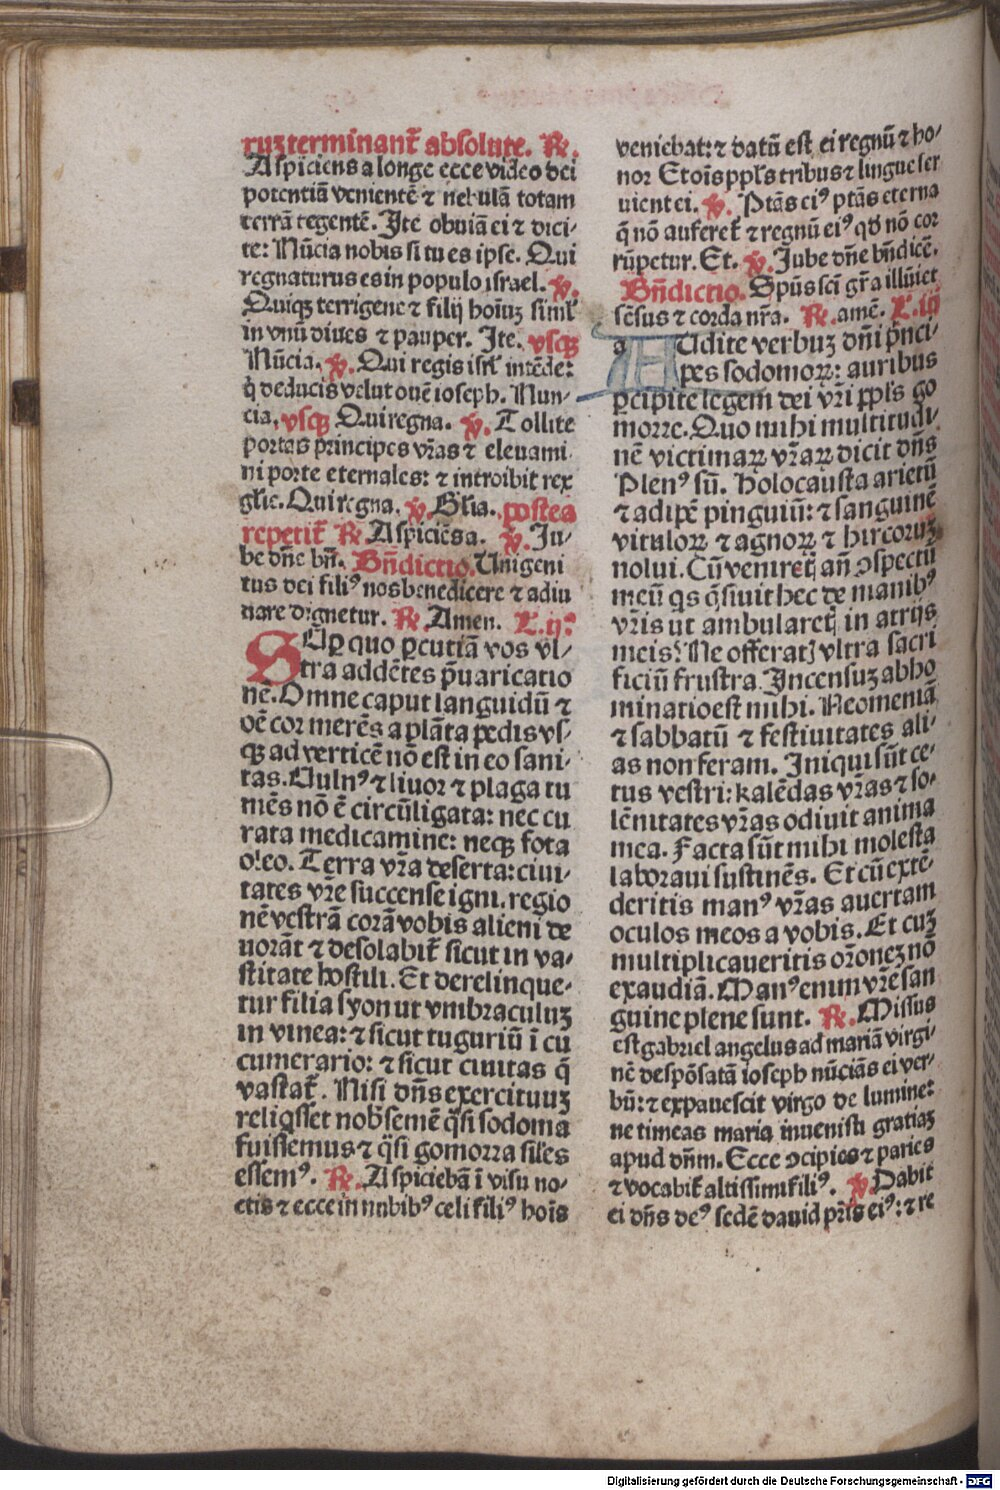 ruꝫ terminant᷑ absolute. ℟.
Aspiciens a longe ecce video dei
potentiā venientē ⁊ nebulā totam
terrā tegentē. Ite obuiā ei ⁊ dici-
te: Nūcia nobis si tu es ipse. Qui
regnaturus es in populo israel. ℣.
Quiqꝫ terrigene ⁊ filij hoīuꝫ simĺ
in vnū diues ⁊ pauper. Ite. vsqꝫ
Nūcia. ℣. Qui regis isrĺ intēde:
q̇ deducis velut ouē ioseph. Nun-
cia. vsqꝫ Qui regna. ℣. Tollite
portas principes vr̄as ⁊ eleuami-
ni porte eternales: ⁊ introibit rex
glīe. Qui regna. ℣. Glīa. postea
repetit᷑ ℟. Aspiciēs a. ℣. Ju-
be dn̄e bn̄. Bn̄dictio. Unigeni
tus dei filiꝰ nos benedicere ⁊ adiu
uare dignetur. ℟. Amen. L. ij.ᵃ
SUꝑ quo ꝑcutiā vos vl-
tra addētes p̄uaricatio
nē. Omne caput languidū ⁊
oē cor merēs a plāta pedis vs-
qꝫ ad verticē nō est in eo sani-
tas. Uulnꝰ ⁊ liuor ⁊ plaga tu
mēs nō ē circūligata: nec cu
rata medicamine: neqꝫ fota
oleo. Terra vr̄a deserta: ciui-
tates vr̄e succense igni. regio
nē vestrā corā vobis alieni de
uorāt ⁊ desolabit᷑ sicut in va-
stitate hostili. Et derelinque-
tur filia syon ut vmbraculuꝫ
in vinea: ⁊ sicut tuguriū ī cu
cumerario: ⁊ sicut ciuitas q̄
vastat᷑. Nisi dn̄s exercituuꝫ
reliqsset nob̄ semē q̄si sodoma
fuissemus ⁊ q̄si gomorra siles
essemꝰ. ℟. Aspiciebā ī visu no-
ctis ⁊ ecce in nubibꝰ celi filiꝰ hoīs
veniebat: ⁊ datū est ei regnū ⁊ ho-
nor Et oīs ppĺs tribus ⁊ lingue ser
uient ei. ℣. Ptās eiꝰ ptās eterna
q̄ nō auferet᷑ ⁊ regnū eiꝰ qd̄ nō cor
rūpetur. Et. ℣. Jube dn̄e bn̄dicē.
Bn̄dictio. Spūs sc̄i gr̄a illūiet
sēsus ⁊ corda nr̄a. ℟. amē. L. iij
a AUdite verbuꝫ dn̄i p̄nci-
pes sodomoꝝ: auribus
ꝑcipite legem dei vr̄i ppĺs go
morre. Quo mihi multitudi-
nē victimaꝝ vr̄aꝝ dicit dn̄s
Plenꝰ sū. Holocausta arietū
⁊ adipē pinguiū: ⁊ sanguinē
vituloꝝ ⁊ agnoꝝ ⁊ hircoruꝫ
nolui. Cū veniretꝭ an̄ ꝯspectū
meū qs q̄siuit hec de manibꝰ
vr̄is ut ambularetꝭ in atrijs
meis? Ne offeratꝭ vltra sacri
ficiū frustra. Incensuꝫ abho
minatio est mihi. Neomeniā
⁊ sabbatū ⁊ festiuitates ali-
as non feram. Iniqui sūt ce-
tus vestri: kalēdas vr̄as ⁊ so-
lēnitates vr̄as odiuit anima
mea. Facta sūt mihi molesta
laboraui sustinēs. Et cū extē-
deritis manꝰ vr̄as auertam
oculos meos a vobis. Et cuꝫ
multiplicaueritis or̄oneꝫ nō
exaudiā. Manꝰ enim vr̄e san
guine plene sunt. ℟. Missus
est gabriel angelus ad mariā virgi-
nē despōsatā ioseph nūciās ei ver-
bū: ⁊ expauescit virgo de lumine:
ne timeas maria inuenisti gratiaꝫ
apud dn̄m. Ecce ꝯcipies ⁊ paries
⁊ vocabit᷑ altissimi filiꝰ. ℣. Dabit
ei dn̄s deꝰ sedē dauid pr̄is eiꝰ: ⁊ re
Digitalisierung gefördert durch die Deutsche Forschungsgemeinschaft - DFG